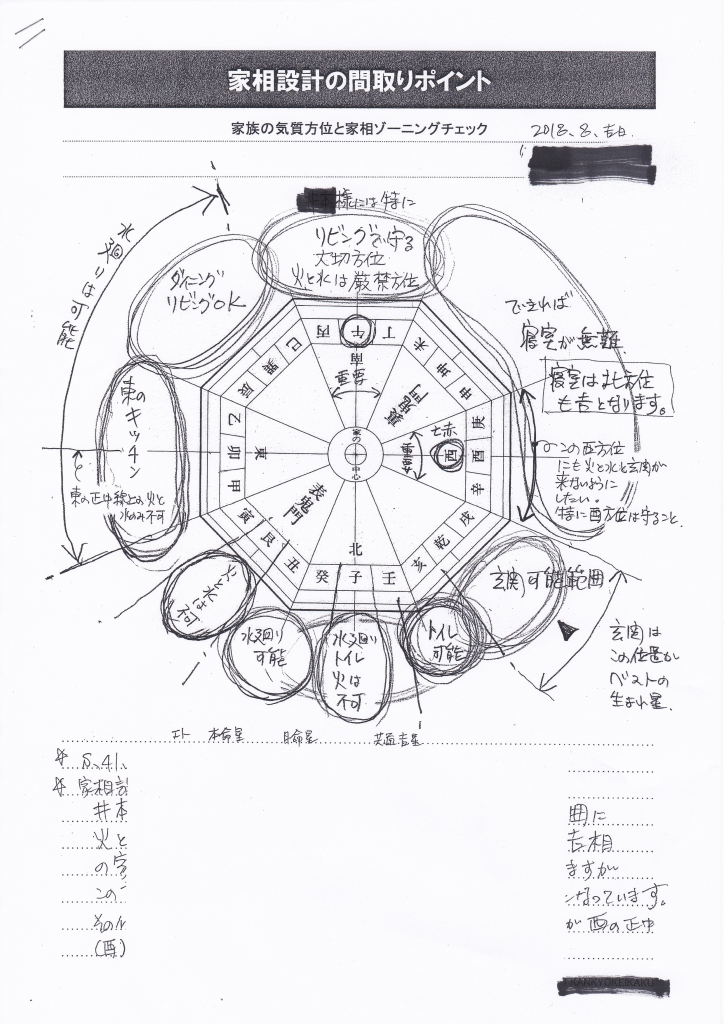 家相設計の間取りポイント
家族の気質方位と家相ゾーニングチェック
2018、8、吉日
様には特に
リビングで守る
大切方位
火と水は厳禁方位
ダイニング
リビングOK
水廻りは可能
できれば
寝室が無難
寝室は北方位
も吉となります。
この西方位
にも火と水と玄関が
来ないように
したい。
特に酉方位は守ること、
東の
キッチン
東の正中線上の火と
水のみ不可
巳 丙 午 丁 未
巽 南 坤
辰 重要 裏鬼門 申
乙 七赤 庚
卯 東 家の中心 重要 酉 酉
甲 辛
寅 表鬼門 戌
艮 北 乾
丑 癸 子 壬 亥
火と水は
不可
水廻り
可能
水廻り
トイレ
火は
不可
トイレ
可能
玄関可能範囲
玄関は
この位置が
ベストの
生まれ星、
エト 本命星 月命星 共通吉星
S、41、
家相設
井本
囲に
火と
吉相
の
ますが
この
なっています。
その
が酉の正中
(酉)